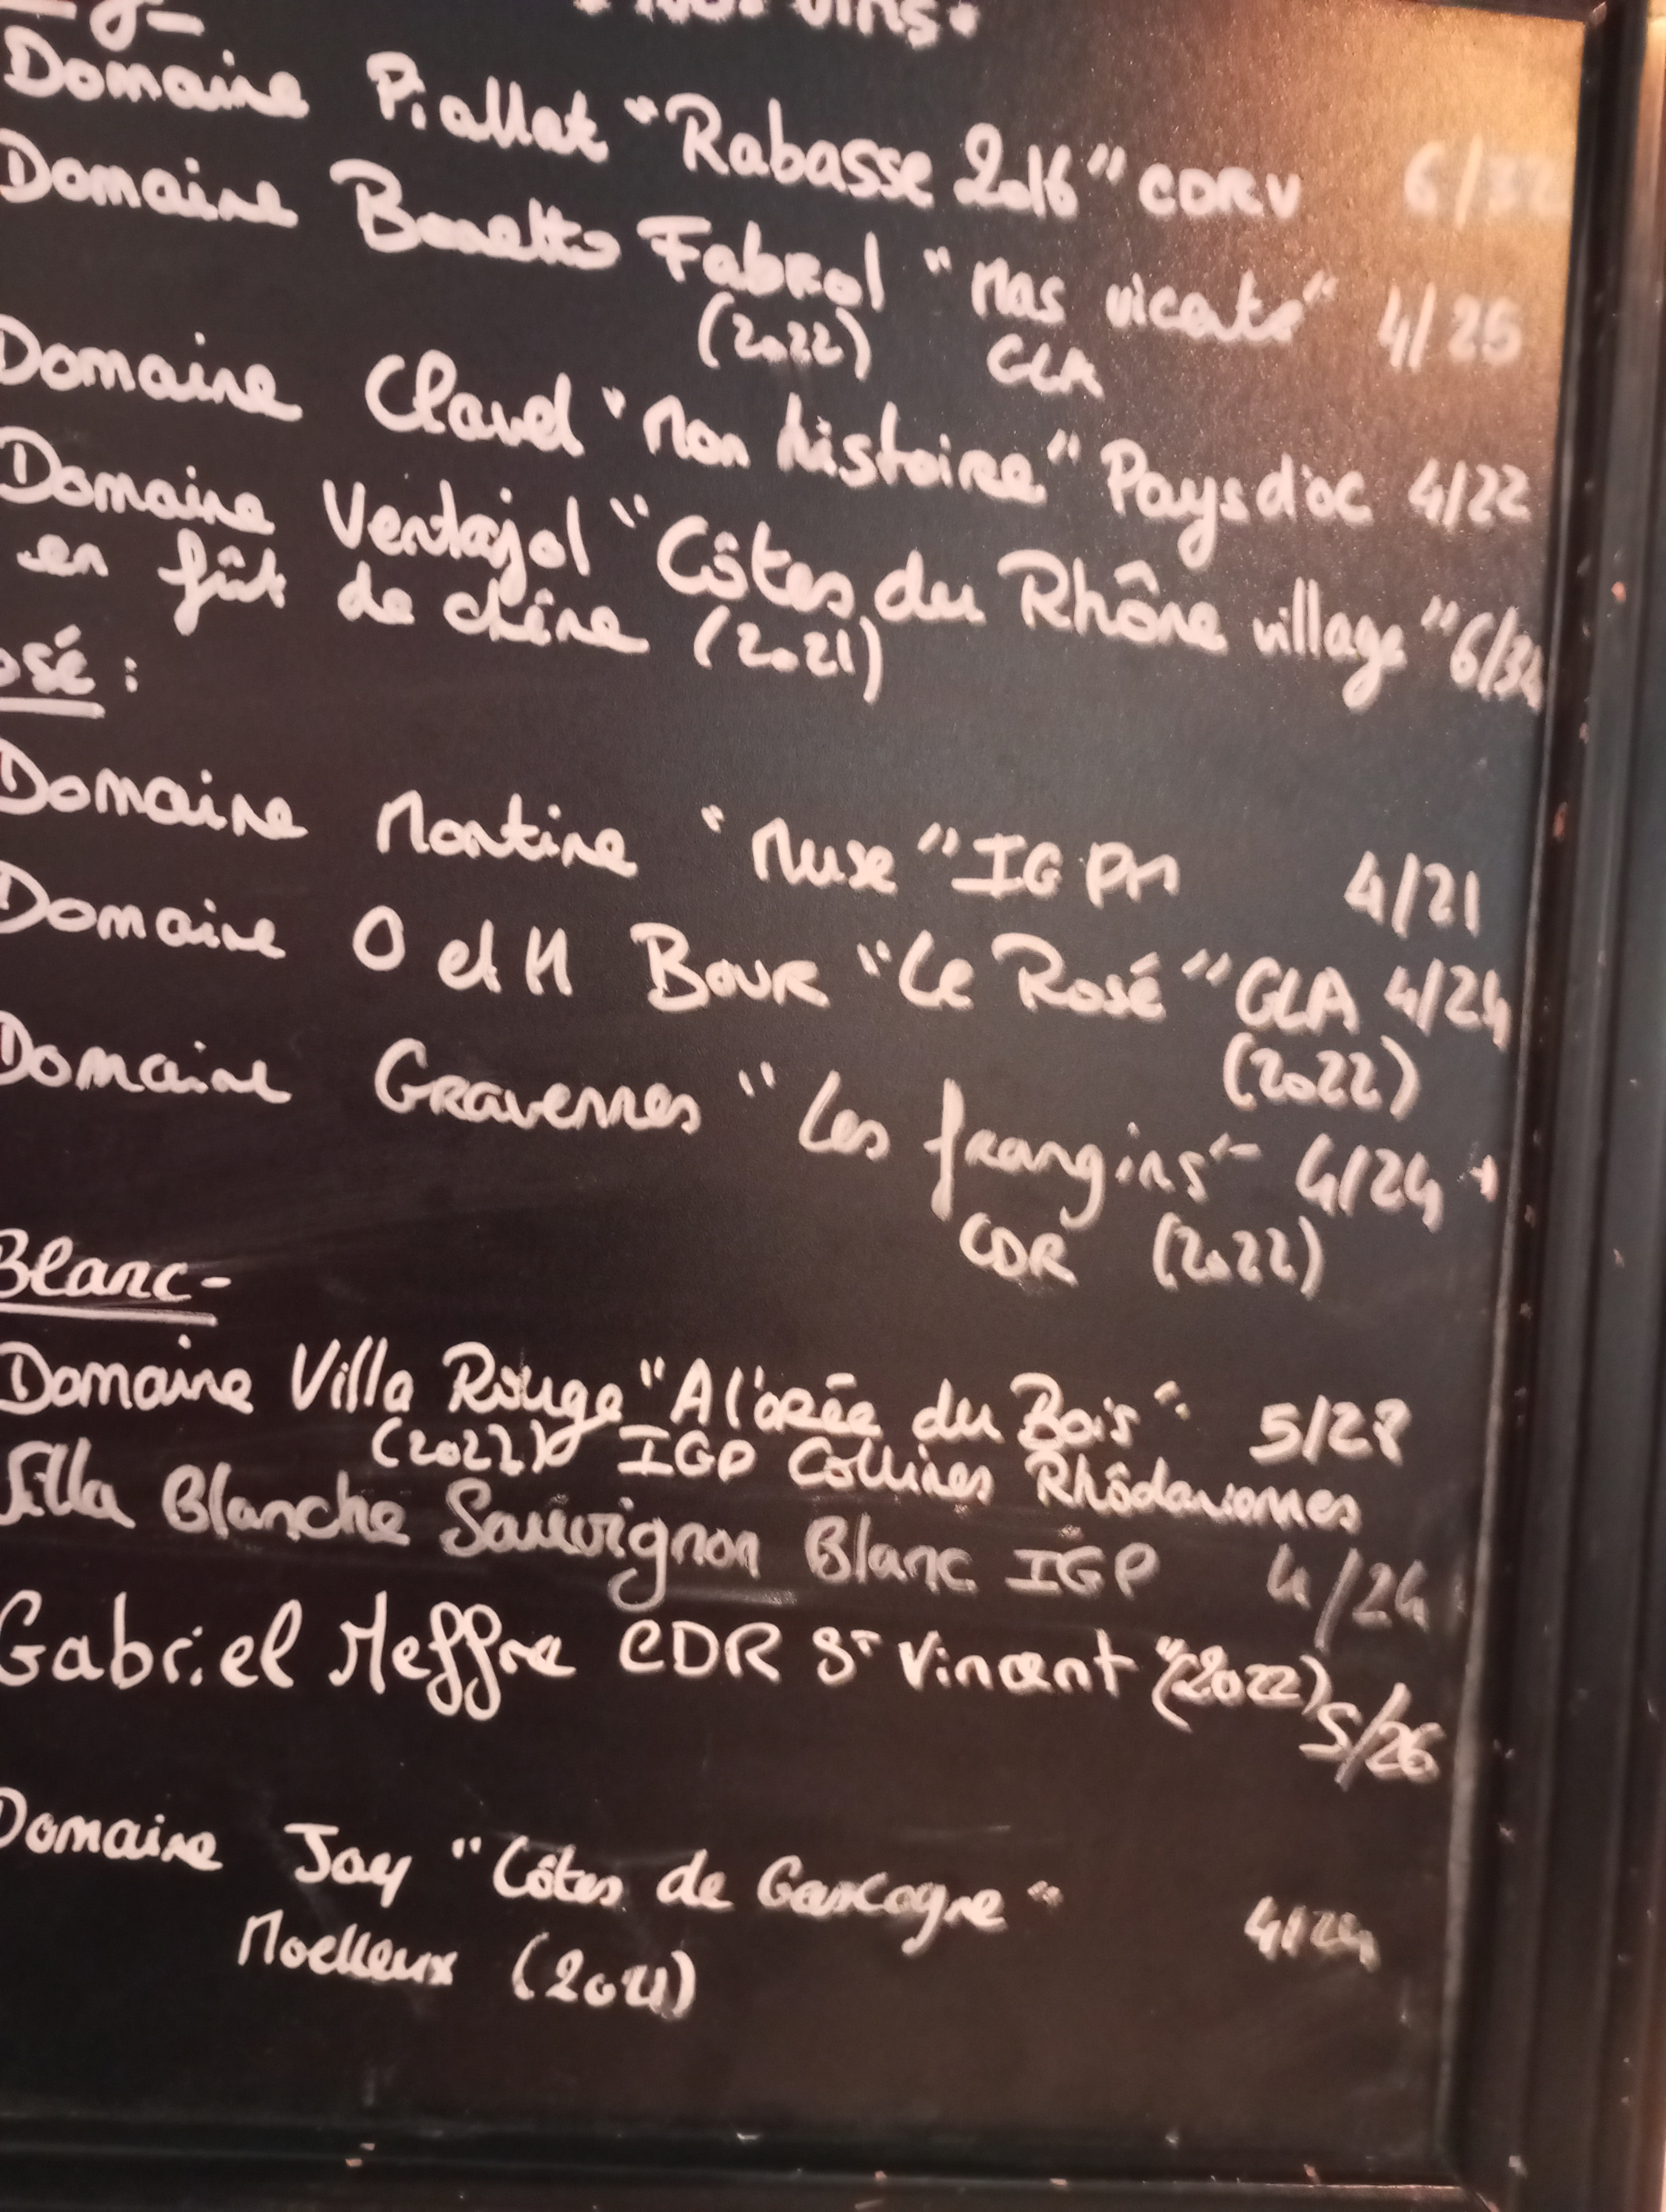 Nos vins.
Domaine Piallat "Rabasse 2016" CDRV 6/32
Domaine Bonetto Fabrol "Mas vicato" 4/25
(2022) GLA
Domaine Clavel "Mon histoire" Pays d'oc 4/22
Domaine Ventajol "Côtes du Rhône village" 6/34
en fût de chêne (2021)
osé :
Domaine Montine "Muse" IGPM 4/21
Domaine O et H Bour "Le Rosé" GLA 4/24
(2022)
Domaine Gravennes "Les frangins" 4/24
CDR (2022)
Blanc-
Domaine Villa Rouge "A l'orée du Bois" 5/28
(2022) IGP Collines Rhôdaniennes
Villa Blanche Sauvignon Blanc IGP 4/24
Gabriel Meffre CDR St Vincent "(2022) 5/26
Domaine Joy "Côtes de Gascogne" 4/24
Moelleux (2021)